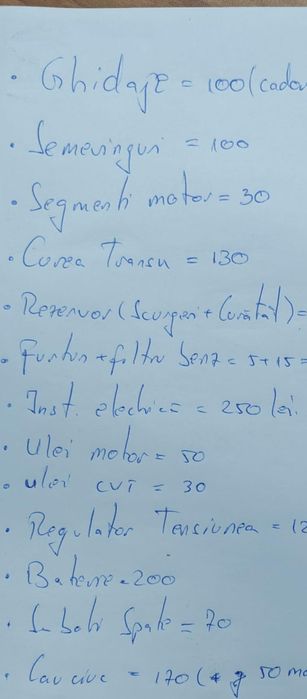 • Ghidaje = 100 (cadou
• Semeringuri = 100
• Segmenti motor = 30
• Curea Transm = 130
• Rezervor (Scurgeri + Curătăt) =
• Furtun + filtru benz = 5 + 15 =
• Inst. electrică = 250 lei
• Ulei motor = 50
• ulei CVT = 30
• Regulator Tensiunea = 12
• Baterie = 200
• Spate = 70
• Cauciuc = 170 ( 50